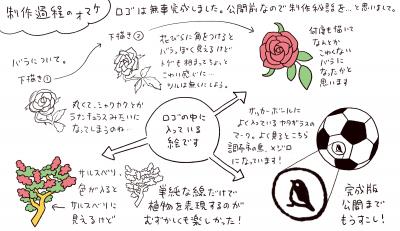 制作過程のオマケ
ロゴは無事完成しました。公開前なので制作秘話を…と思いまして。
バラについて。
下描き①
下描き②
丸くて、シャクヤクとか
ラナンキュラスみたいに
なってしまうのね…
花びらに角をつけると
バラっぽく見えるけど
トゲも相まってちょっと
こわい感じに…
ツルは無くしよう。
何度も描いて
なんとか
こわくない
バラに
なったかと
思います
ロゴの中に
入っている
絵です
サッカーボールに
よく入っているヤタガラスの
マーク。よく見るとこちら
調布市の鳥、メジロ
になっています!
サルスベリ、
色が入ると
サルスベリに
見えるけど
単純な線だけで
植物を表現するのが
むずかしくも楽しかった!
完成版
公開まで
もうすこし!